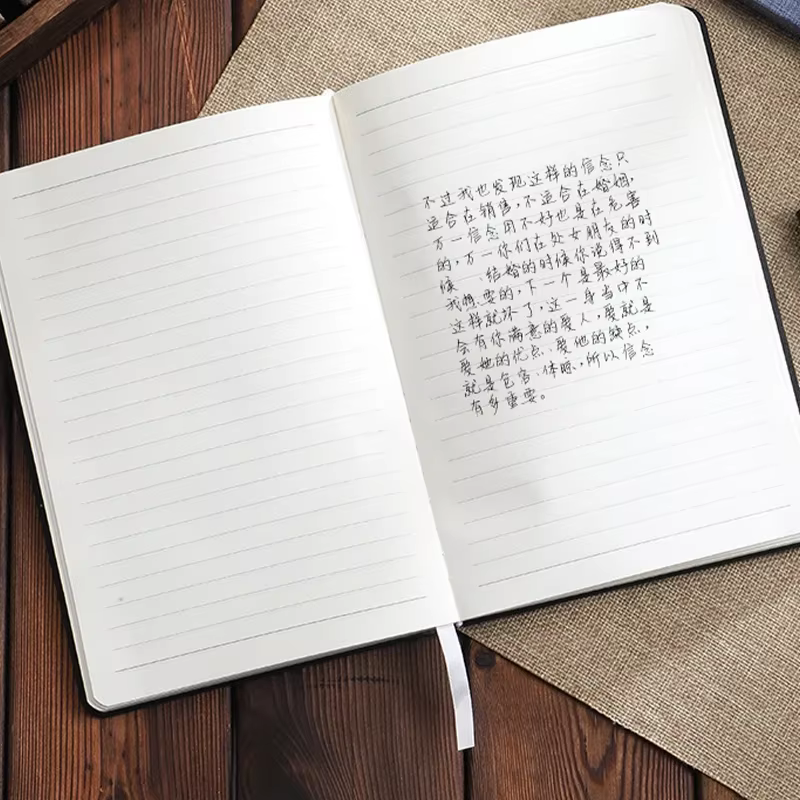 不过我也发现这样的信念只
适合在销售，不适合在婚姻，
万一信念用不好也是在危害
的，万一你们在处女朋友的时
候、结婚的时候你说得不到
我想要的，下一个是最好的
这样就坏了，这一身当中不
会有你满意的爱人，爱就是
爱她的优点、爱他的缺点，
就是包容、体晾，所以信念
有多重要。